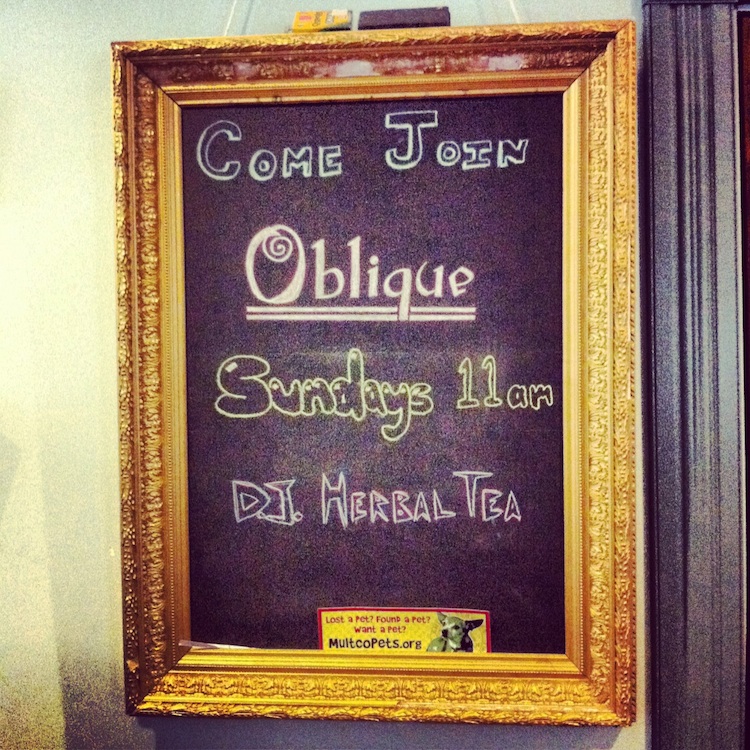 Come Join
Oblique
Sundays 11am
D.J. Herbal Tea
Lost a Pet? Found a Pet?
Want a Pet?
MultcoPets.org